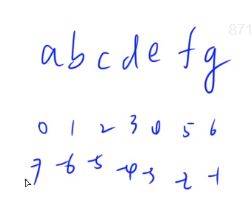 871
a b c d e f g
0 1 2 3 4 5 6
-7 -6 -5 -4 -3 -2 -1